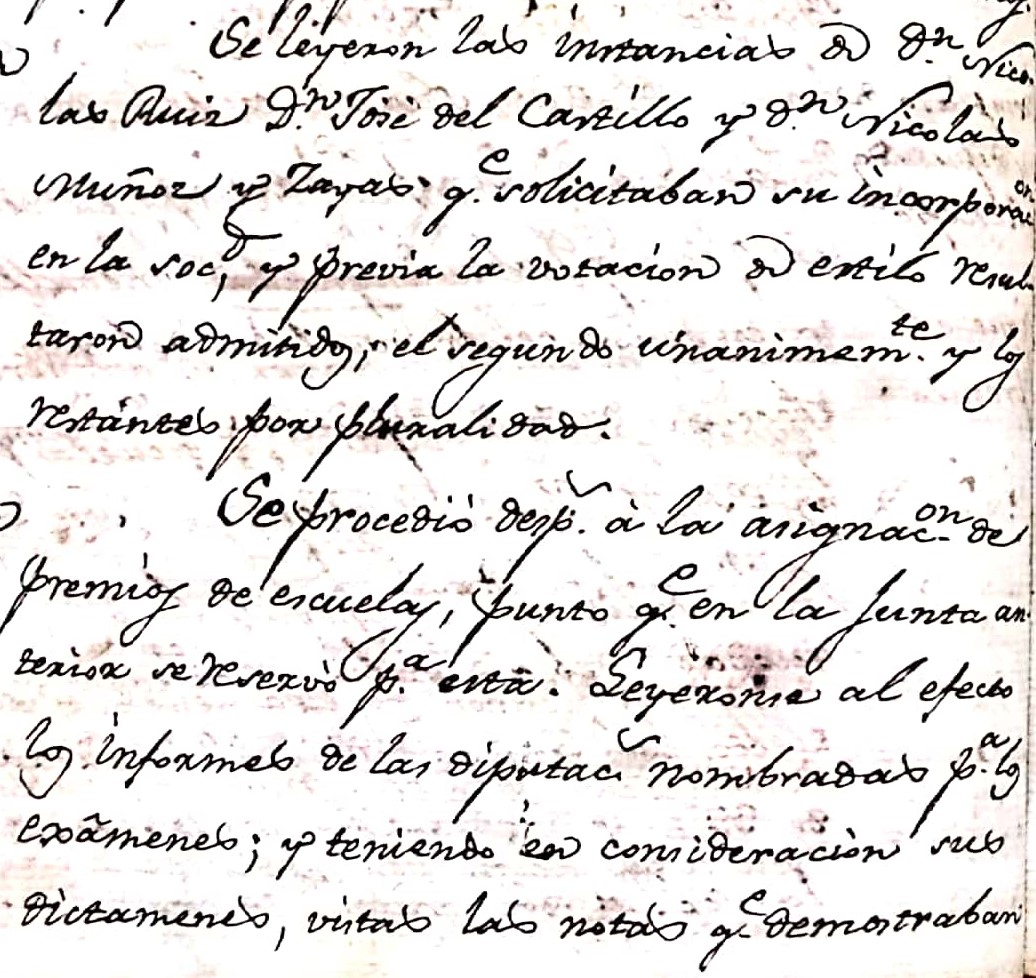 Se leyeron las instancias de Dn. Nico-
las Ruiz Dn. José del Castillo y dn. Nicolas
Muñoz y Zayas qe. solicitaban su incorporaon
en la socd, y previa la votacion de estilo resul-
taron admitidos, el segundo unanimemte. y los
restantes por pluralidad.
Se procedió desp.s à la asignacon. de
premios de escuelas, punto qe. en la Junta an-
terior se reservò pa. esta. Leyeronse al efecto
los informes de las diputac.s nombradas pa. los
exâmenes; y teniendo en consideraciòn sus
dictamenes, vistas las notas qe. demostraban